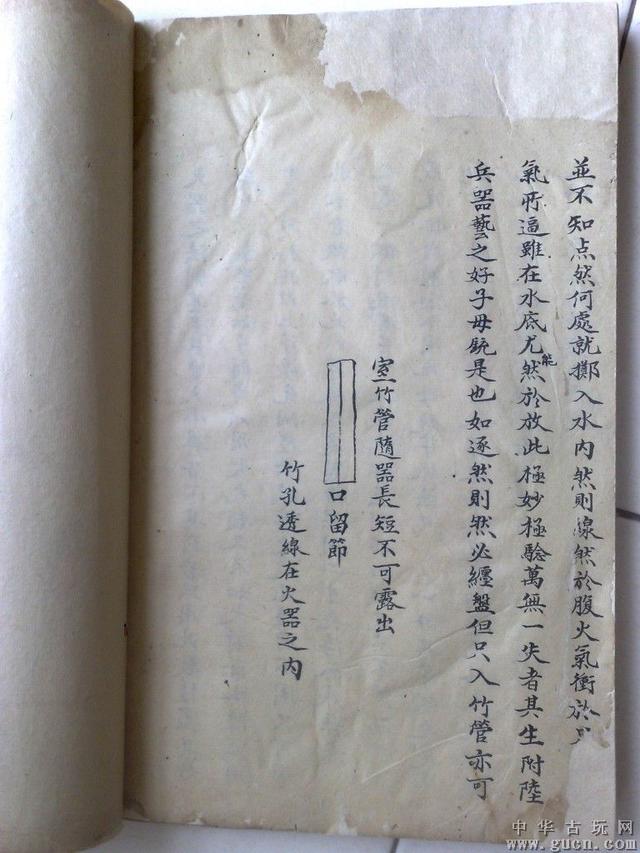 並不知点然何處就擲入水内然則線然於腹火氣衝於
氣所逼雖在水底尤能然於放此極妙極驗萬無一失者其生附陸
兵器藝之好子母銃是也如逐然則然必纏盤但只入竹管亦可
竹管隨器長短不可露出
口留節
竹孔透線在火器之内
中华古玩网
www.gucn.com